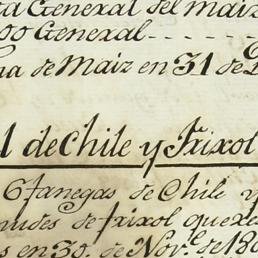 General del maiz
General
de Maiz en 31 de
de Chile y Frixol
6 fanegas de Chile y
de frixol que
en 30. de Nov.e de 18